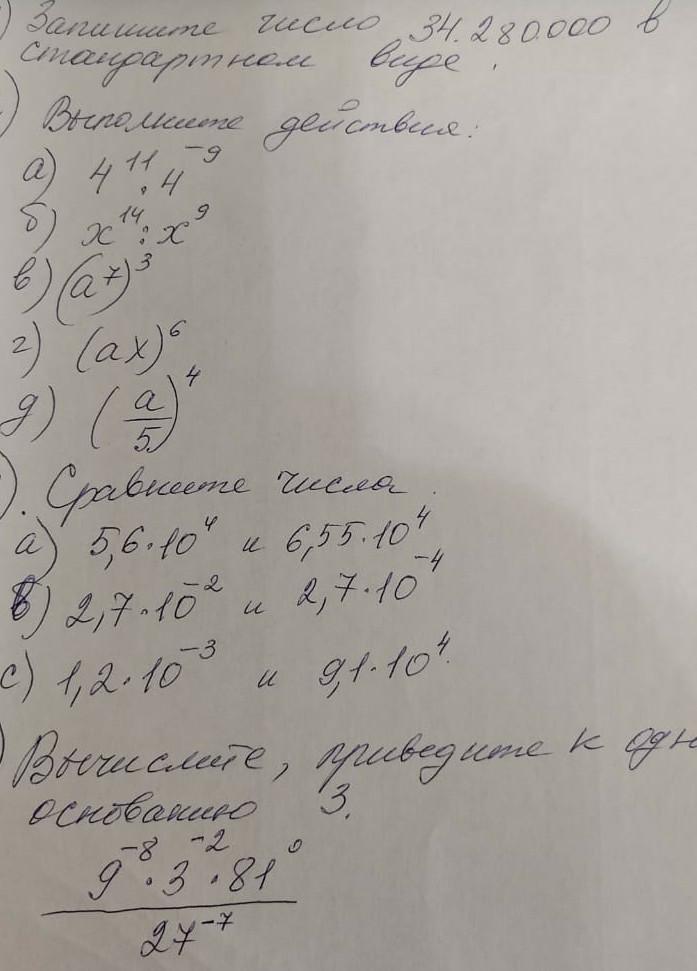 ) Запишите число 34.280.000 в
стандартном виде.
) Выполните действия:
а) 4¹¹ · 4⁻⁹
б) x¹⁴ : x⁹
в) (a⁷)³
г) (ax)⁶
д) (a/5)⁴
). Сравните числа.
а) 5,6·10⁴ и 6,55·10⁴
б) 2,7·10⁻² и 2,7·10⁻⁴
с) 1,2·10⁻³ и 9,1·10⁴.
) Вычислите, приведите к одн
основанию 3.
9⁻⁸ · 3⁻² · 81⁰
27⁻⁷